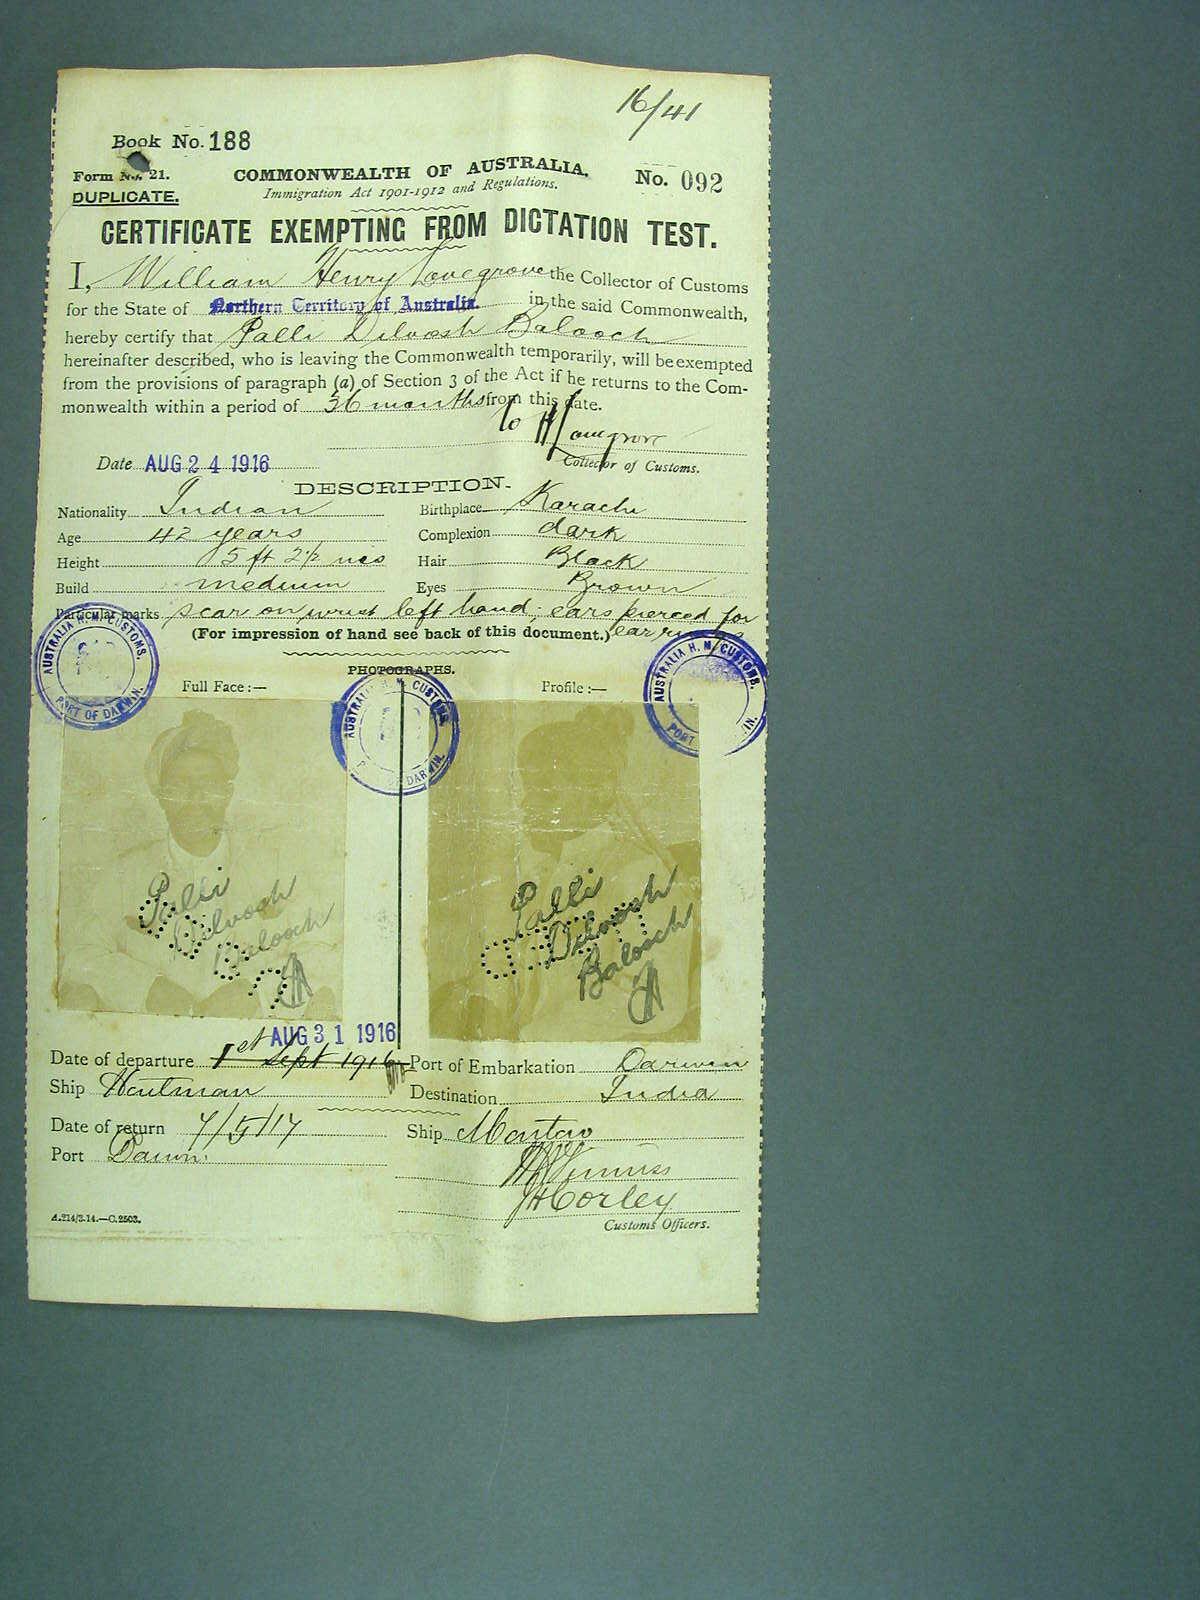 16/41
Book No. 188
Form No. 21.
COMMONWEALTH OF AUSTRALIA.
No. 092
DUPLICATE.
Immigration Act 1901-1912 and Regulations.
CERTIFICATE EXEMPTING FROM DICTATION TEST.
I, William Henry Lovegrove the Collector of Customs
for the State of Northern Territory of Australia. in the said Commonwealth,
hereby certify that Palli Dilvosh Balooch
hereinafter described, who is leaving the Commonwealth temporarily, will be exempted
from the provisions of paragraph (a) of Section 3 of the Act if he returns to the Com-
monwealth within a period of 36 months from this date.
W H Lovegrove
Date AUG 24 1916 Collector of Customs.
DESCRIPTION.
Nationality Indian Birthplace Karachi
Age 42 years Complexion dark
Height 5 ft 2½ ins Hair Black
Build medium Eyes Brown
Particular marks scar on wrist left hand; ears pierced for
(For impression of hand see back of this document.) ear rings
PHOTOGRAPHS.
AUSTRALIA H. M. CUSTOMS.
PORT OF DARWIN.
AUSTRALIA H. M. CUSTOMS.
PORT OF DARWIN.
AUSTRALIA H. M. CUSTOMS.
PORT IN.
Full Face:— Profile:—
Palli
Dilvosh
Balooch
Palli
Dilvosh
Balooch
AUG 31 1916
Date of departure 1st Sept 1916 Port of Embarkation Darwin
Ship Houtman Destination India
Date of return 7/5/17 Ship Montoro
Port Darwin.
JHCorley
A.214/3.14.—C.2503.
Customs Officers.